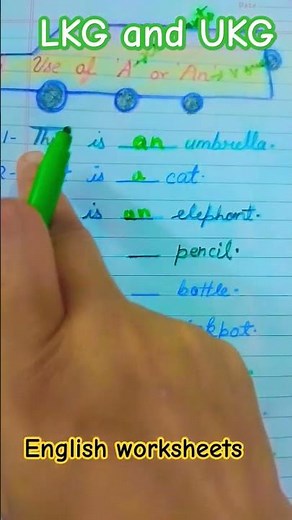 LKG and UKG
Use of 'A' or 'An'
1- is an umbrella.
2- is a cat.
is an elephant.
pencil.
bottle.
English worksheets